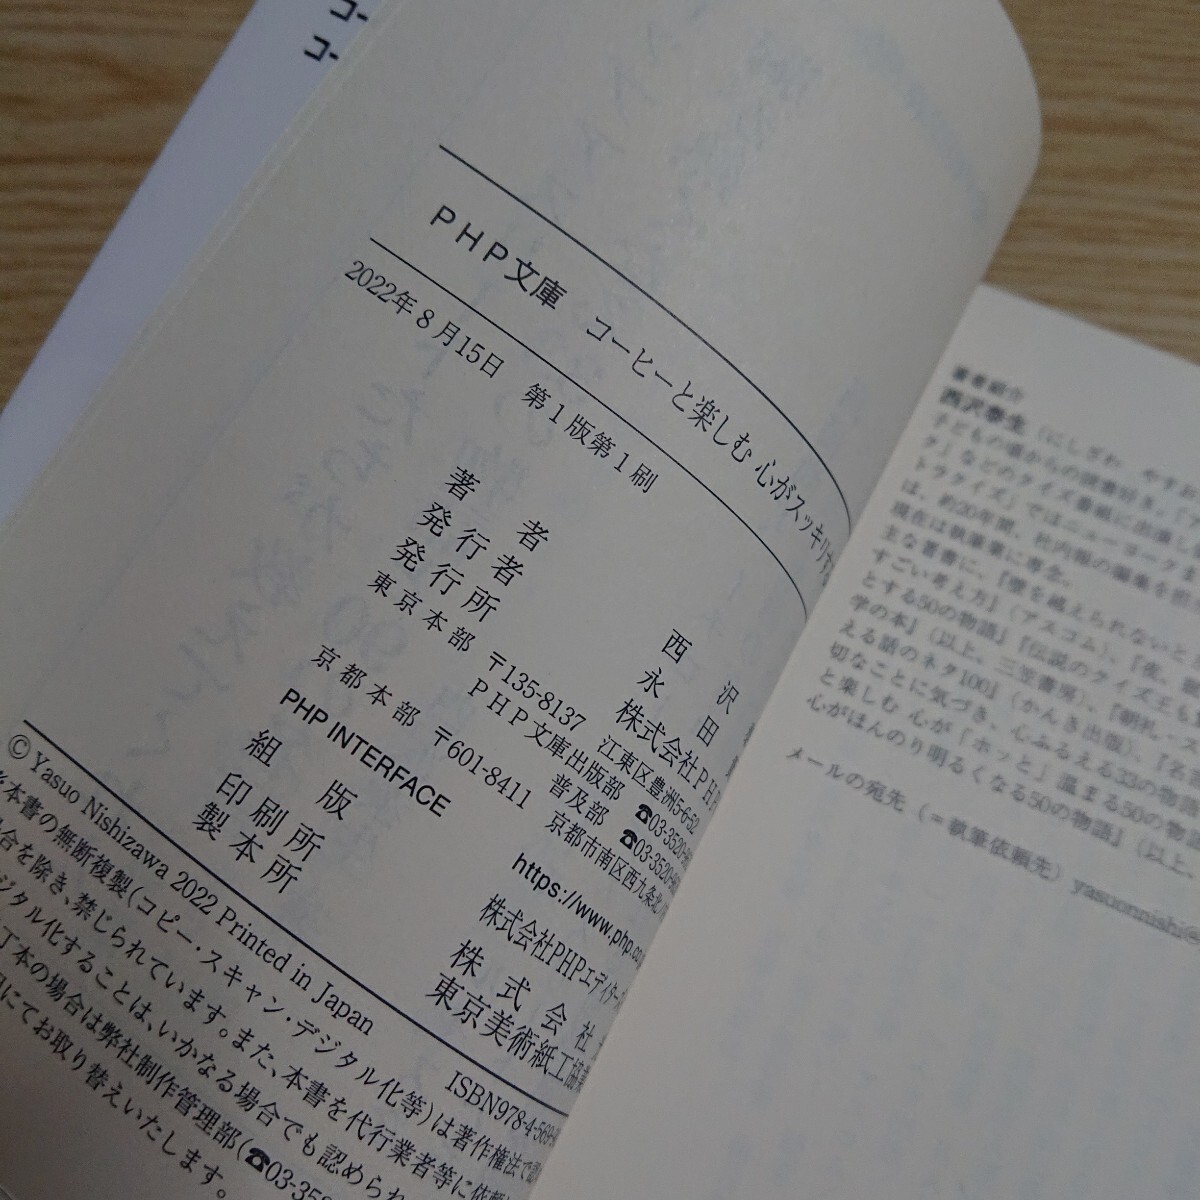 コー
コー
PHP文庫 コーヒーと楽しむ 心がスッキリす
2022年8月15日 第1版第1刷
著者 西沢
発行者 永田
発行所 株式会社PH
東京本部 〒135-8137 江東区豊洲5-6-52
PHP文庫出版部 ☎03-3520-
普及部 ☎03-3520-
京都本部 〒601-8411 京都市南区西九条北
PHP INTERFACE https://www.php.co
組版 株式会社PHPエディター
印刷所 株式会社
製本所 東京美術紙工協業
© Yasuo Nishizawa 2022 Printed in Japan ISBN978-4-569-
本書の無断複製(コピー・スキャン・デジタル化等)は著作権法で
場合を除き、禁じられています。また、本書を代行業者等に依頼
ジタル化することは、いかなる場合でも認められ
丁本の場合は弊社制作管理部(☎03-352
にてお取り替えいたします。
著者紹介
西沢泰生(にしざわ やすお
子どもの頃からの読書好き。「
ク」などのクイズ番組に出演し
トラクイズ」ではニューヨークま
は、約20年間、社内報の編集を担
現在は執筆業に専念。
主な著書に、『壁を越えられないと
すごい考え方』(アスコム)、『夜、
とする50の物語』『伝説のクイズ王も
学の本』(以上、三笠書房)、『朝礼・ス
える話のネタ100』(かんき出版)、『名
切なことに気づき、心ふるえる33の物語
と楽しむ 心が「ホッと」温まる50の物語
心がほんのり明るくなる50の物語』(以上、
メールの宛先(=執筆依頼先)yasuonnishi@